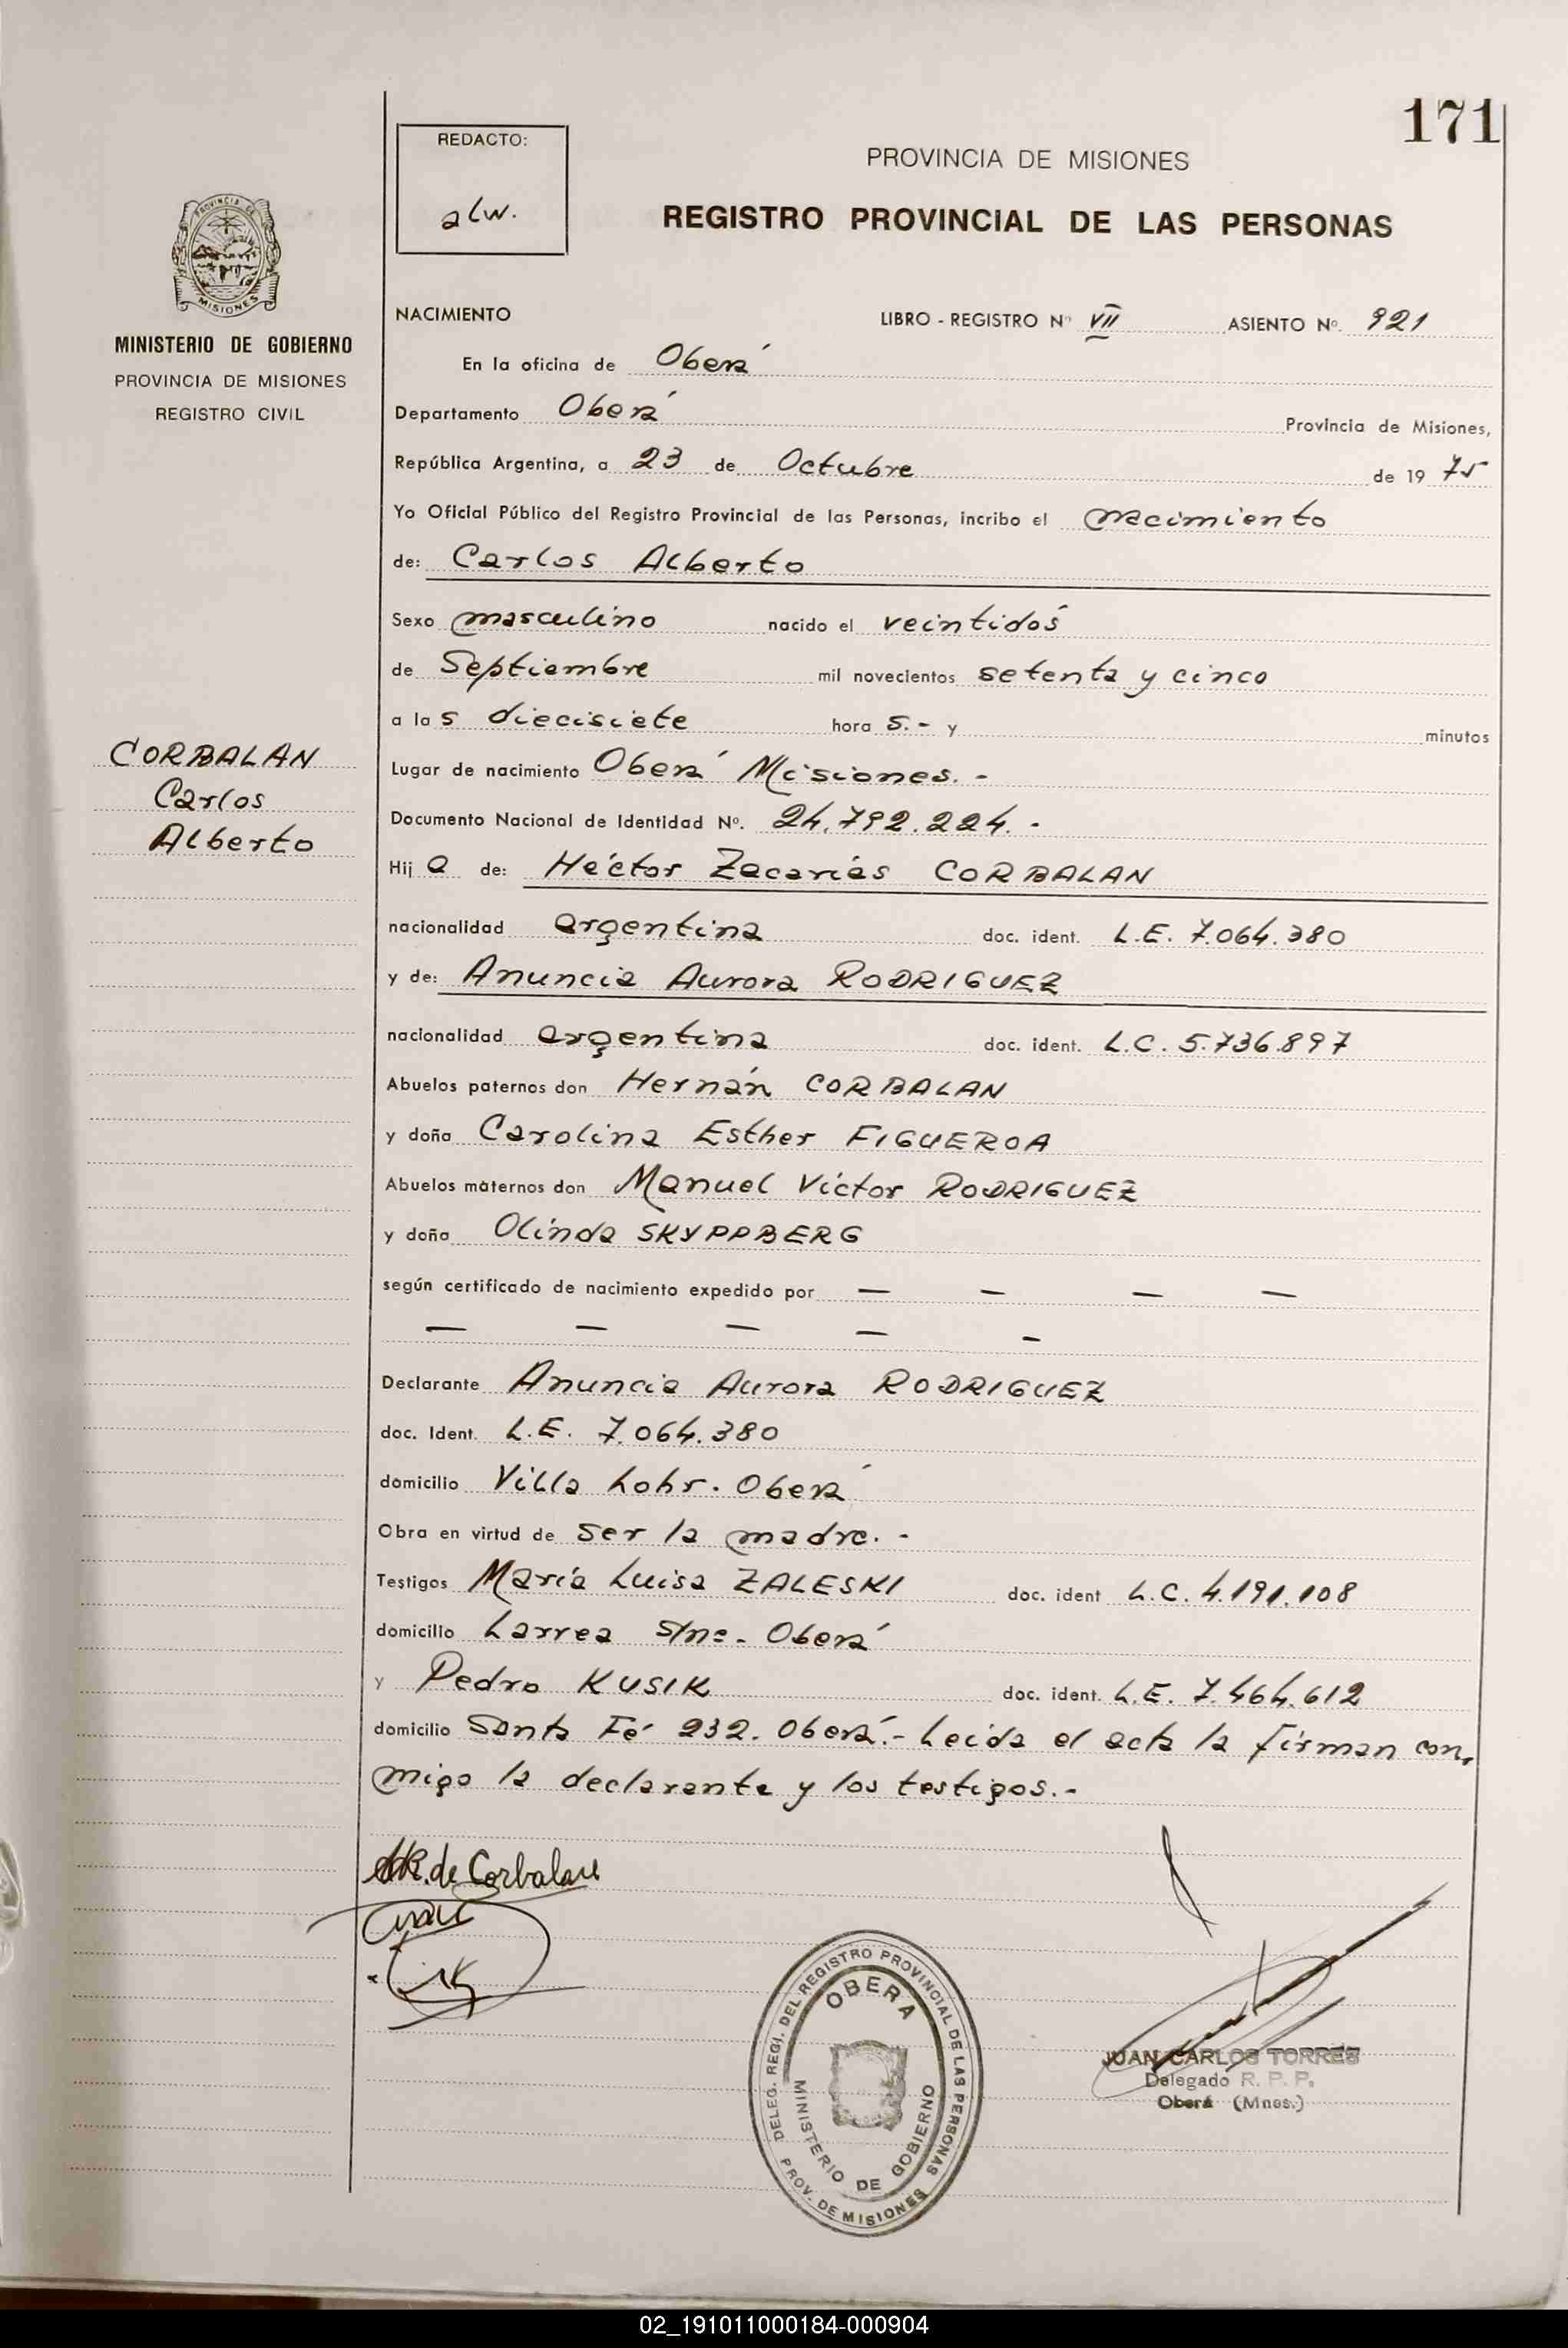 171
REDACTO:
alw.
PROVINCIA DE MISIONES
REGISTRO PROVINCIAL DE LAS PERSONAS
PROVINCIA DE
MISIONES
MINISTERIO DE GOBIERNO
PROVINCIA DE MISIONES
REGISTRO CIVIL
NACIMIENTO LIBRO - REGISTRO Nº VII ASIENTO Nº. 921
En la oficina de Oberá
Departamento Oberá Provincia de Misiones,
República Argentina, a 23 de Octubre de 19 75
Yo Oficial Público del Registro Provincial de las Personas, incribo el nacimiento
de: Carlos Alberto
Sexo masculino nacido el veintidós
de Septiembre mil novecientos setenta y cinco
a las diecisiete hora s.- y minutos
CORBALAN
Carlos
Alberto
Lugar de nacimiento Oberá Misiones.-
Documento Nacional de Identidad Nº. 24.792.224.-
Hij o de: Héctor Zacarías CORBALAN
nacionalidad argentina doc. ident. L.E. 7.064.380
y de: Anuncia Aurora RODRIGUEZ
nacionalidad argentina doc. ident. L.C. 5.736.897
Abuelos paternos don Hernán CORBALAN
y doña Carolina Esther FIGUEROA
Abuelos maternos don Manuel Víctor RODRIGUEZ
y doña Olinda SKYPPBERG
según certificado de nacimiento expedido por — — — —
— — — — —
Declarante Anuncia Aurora RODRIGUEZ
doc. Ident. L.E. 7.064.380
domicilio Villa Lohr. Oberá
Obra en virtud de ser la madre.-
Testigos María Luisa ZALESKI doc. ident L.C. 4.191.108
domicilio Larrea s/nº.- Oberá
y Pedro KUSIK doc. ident. L.E. 7.464.612
domicilio Santa Fé 232. Oberá.- Leída el acta la firman con-
migo la declarante y los testigos.-
AR. de Corbalan
DELEG. REGI. DEL REGISTRO PROVINCIAL DE LAS PERSONAS
PROV. DE MISIONES
OBERA
MINISTERIO DE GOBIERNO
JUAN CARLOS TORRES
Delegado R. P. P.
Oberá (Mnes.)
02_191011000184-000904